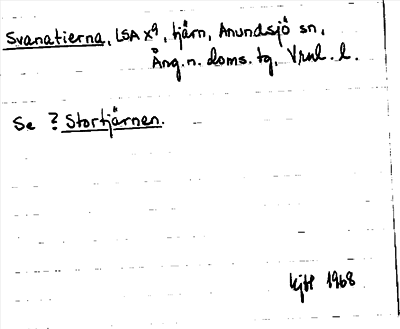 Svanatierna, LSA X9, tjärn, Anundsjö sn,
Ång. n. doms. tg, Vrnl. l.
Se ? Stortjärnen.
1968